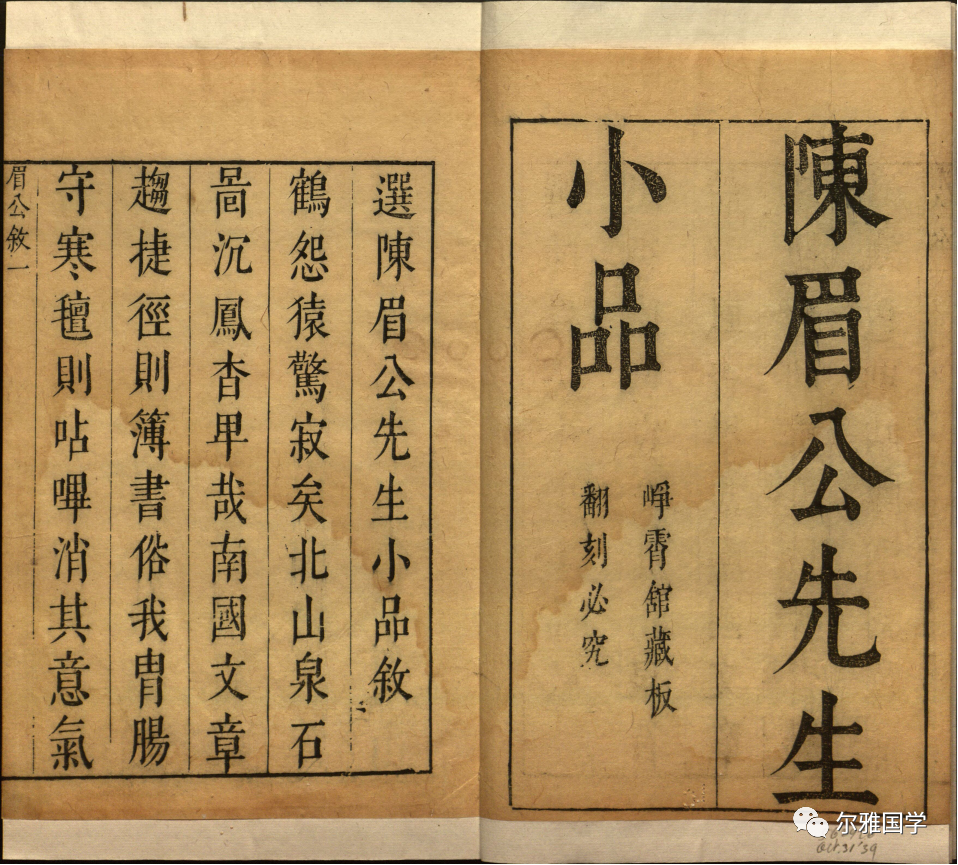 陳眉公先生
小品
崢霄館藏板
翻刻必究
選陳眉公先生小品敘
鶴怨猿驚寂矣北山泉石
啚沉鳳杳卑哉南國文章
趨捷徑則簿書俗我胃腸
守寒氊則呫嗶消其意氣
眉公敘一
尔雅国学
Oct.31'39